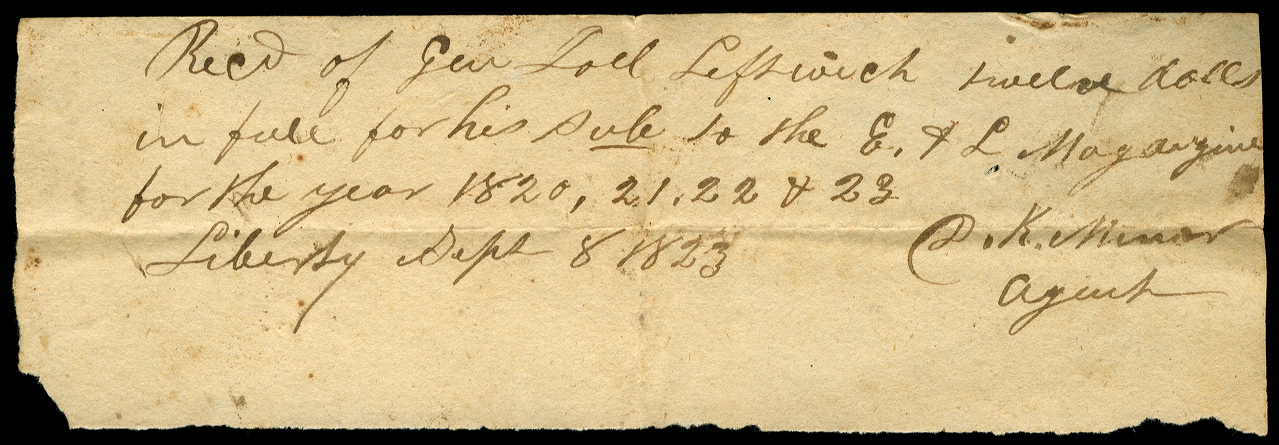 Recd of Gen Joel Leftwich twelve dolls
in full for his sub to the E. & L Magazine
for the year 1820, 21. 22 & 23
Liberty Sept 8 1823
D. K. Minor
agent